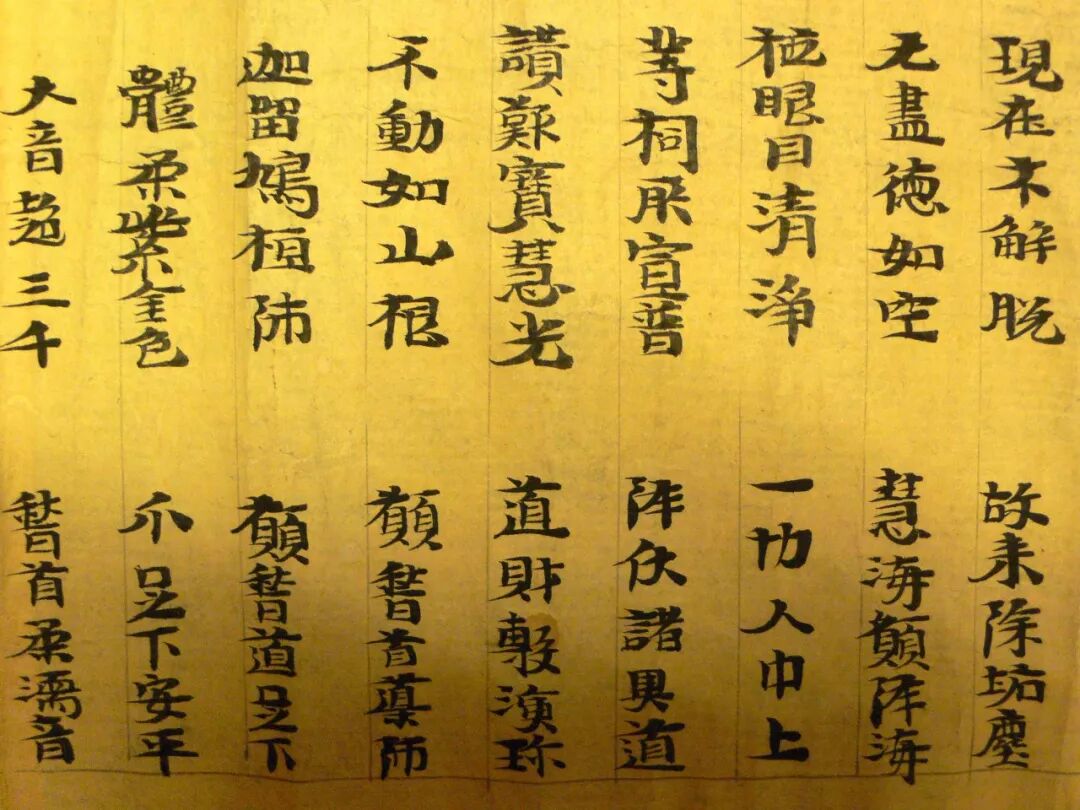 現在不解脫 故来除垢塵
无盡德如空 慧海願降海
極眼目清淨 一切人中上
等祠承宣普 降伏諸異道
讚歎寶慧光 道財穀演珎
不動如山根 願稽首藥師
迦留鳩桓師 願稽道足下
體柔紫金色 爪足下安平
大音超三千 稽首柔濡音